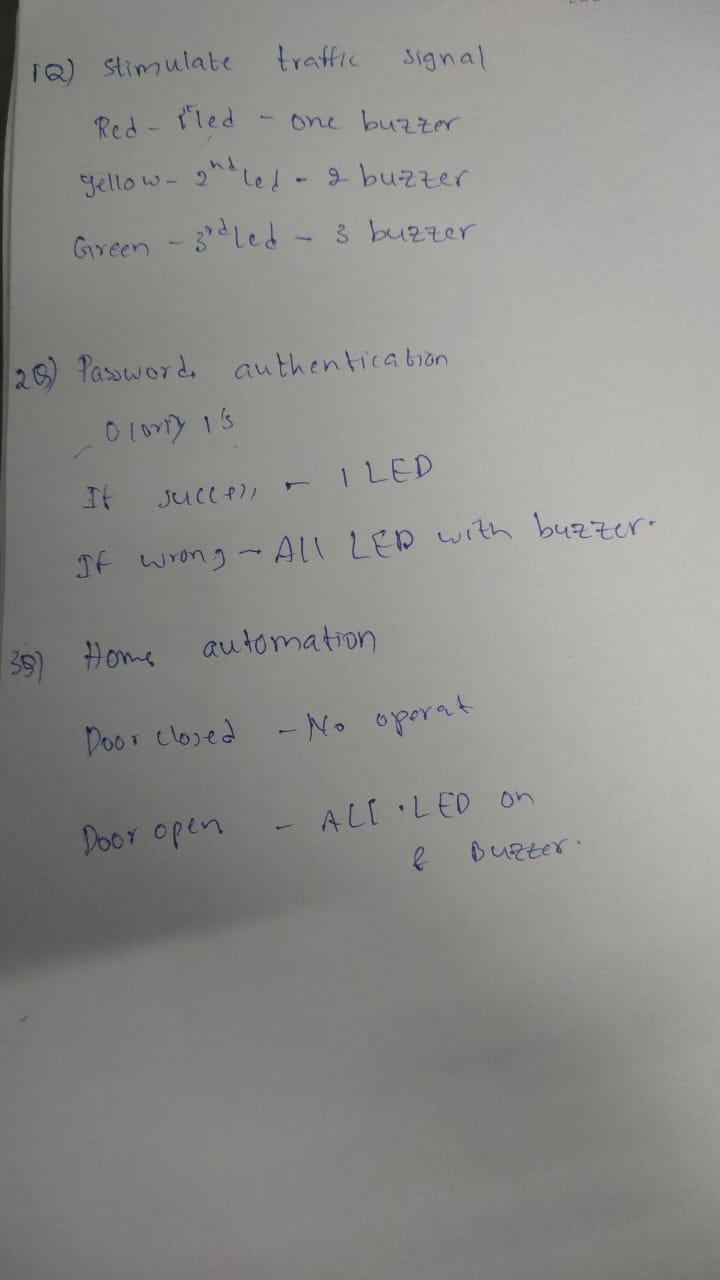 1Q) Stimulate traffic signal
Red - 1st led - one buzzer
Yellow - 2nd led - 2 buzzer
Green - 3rd led - 3 buzzer
2Q) Password authentication
0 1's
If success - 1 LED
If wrong - All LED with buzzer.
3Q) Home automation
Door closed - No operat
Door open - ALL LED on
& Buzzer.